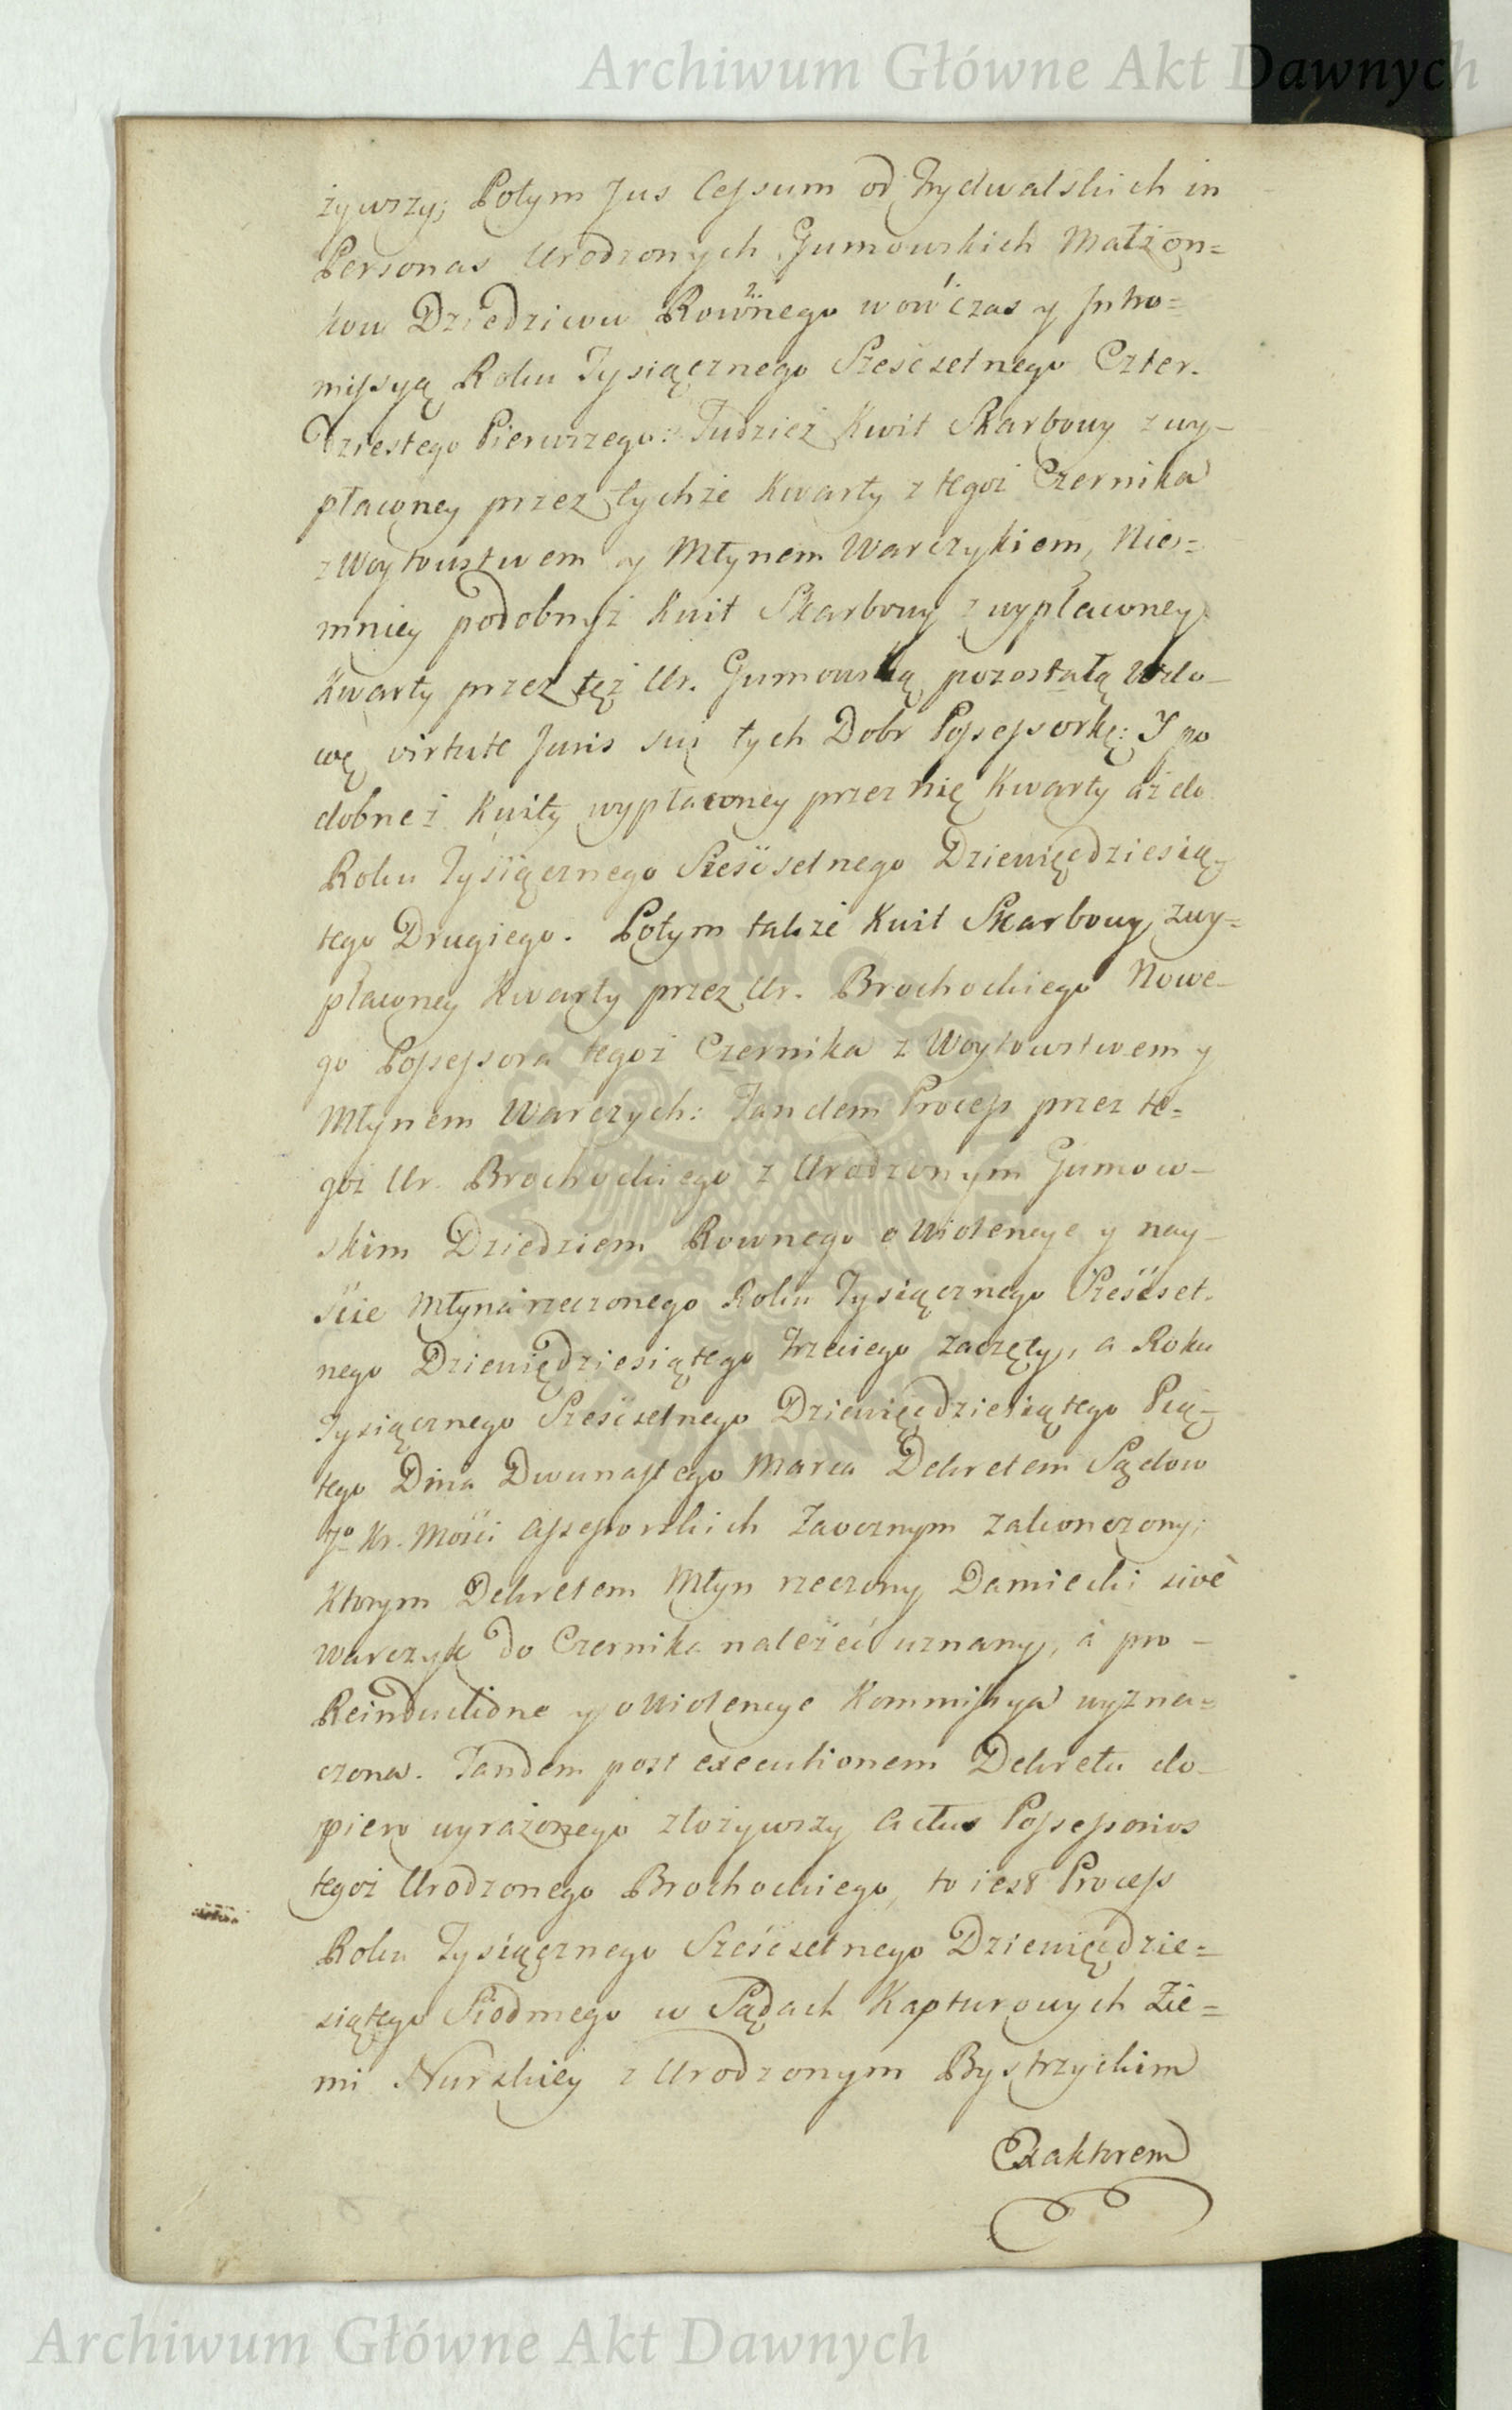 Archiwum Główne Akt Dawnych
żywszy; Potym Jus Cessum od Frydwalskich in
Personas Urodzonych Gumowskich Małżon=
kow Dziedzicow Rownego wowczas y Intro=
missyą Roku Tysiącznego Sześćsetnego Czter.
dziestego Pierwszego: Tudzież Kwit Skarbowy z wy-
płaconey przez tychże Kwarty z tegoż Czernika
z Woytowstwem y Młynem Warczykiem, Nie=
mniey podobnyż Kwit Skarbowy z wypłaconey
Kwarty przez tęż Ur. Gumowską pozostałą Wdo-
wę virtute Juris sui tych Dobr Possessorkę: Y po
dobneż Kwity wypłaconey przez nię Kwarty aż do
Roku Tysiącznego Sześćsetnego Dziewięćdziesią-
tego Drugiego. Potym także Kwit Skarbowy, z wy=
płaconey Kwarty przez Ur. Brochockiego Nowe-
go Possessora tegoż Czernika z Woytowstwem y
Młynem Warczych: Tandem Process przez te=
goż Ur. Brochockiego z Urodzonym Gumow-
skim Dziedzicem Rownego o Wiolencye y nay-
ście Młyna rzeczonego Roku Tysiącznego Sześćset.
nego Dziewięćdziesiątego Trzeciego zaczęty, a Roku
Tysiącznego Sześćsetnego Dziewięćdziesiątego Pią-
tego Dnia Dwunastego Marca Dekretem Sądow
Jo Kr. Mości Assessorskich Zaocznym zakonczony;
Ktorym Dekretem Młyn rzeczony Damiecki sivè
Warczyk do Czernika należeć uznany, a pro -
Reinductione y o Wiolencye Kommissya wyzna=
czona. Tandem post executionem Dekretu do-
piero wyrażonego złożywszy Actus Possessorios
tegoż Urodzonego Brochockiego, to iest Process
Roku Tysiącznego Sześćsetnego Dziewięćdzie=
siątego Siodmego w Sądach Kapturowych Zie=
mi Nurskiey z Urodzonym Bystrzyckim
Exaktorem
Archiwum Główne Akt Dawnych